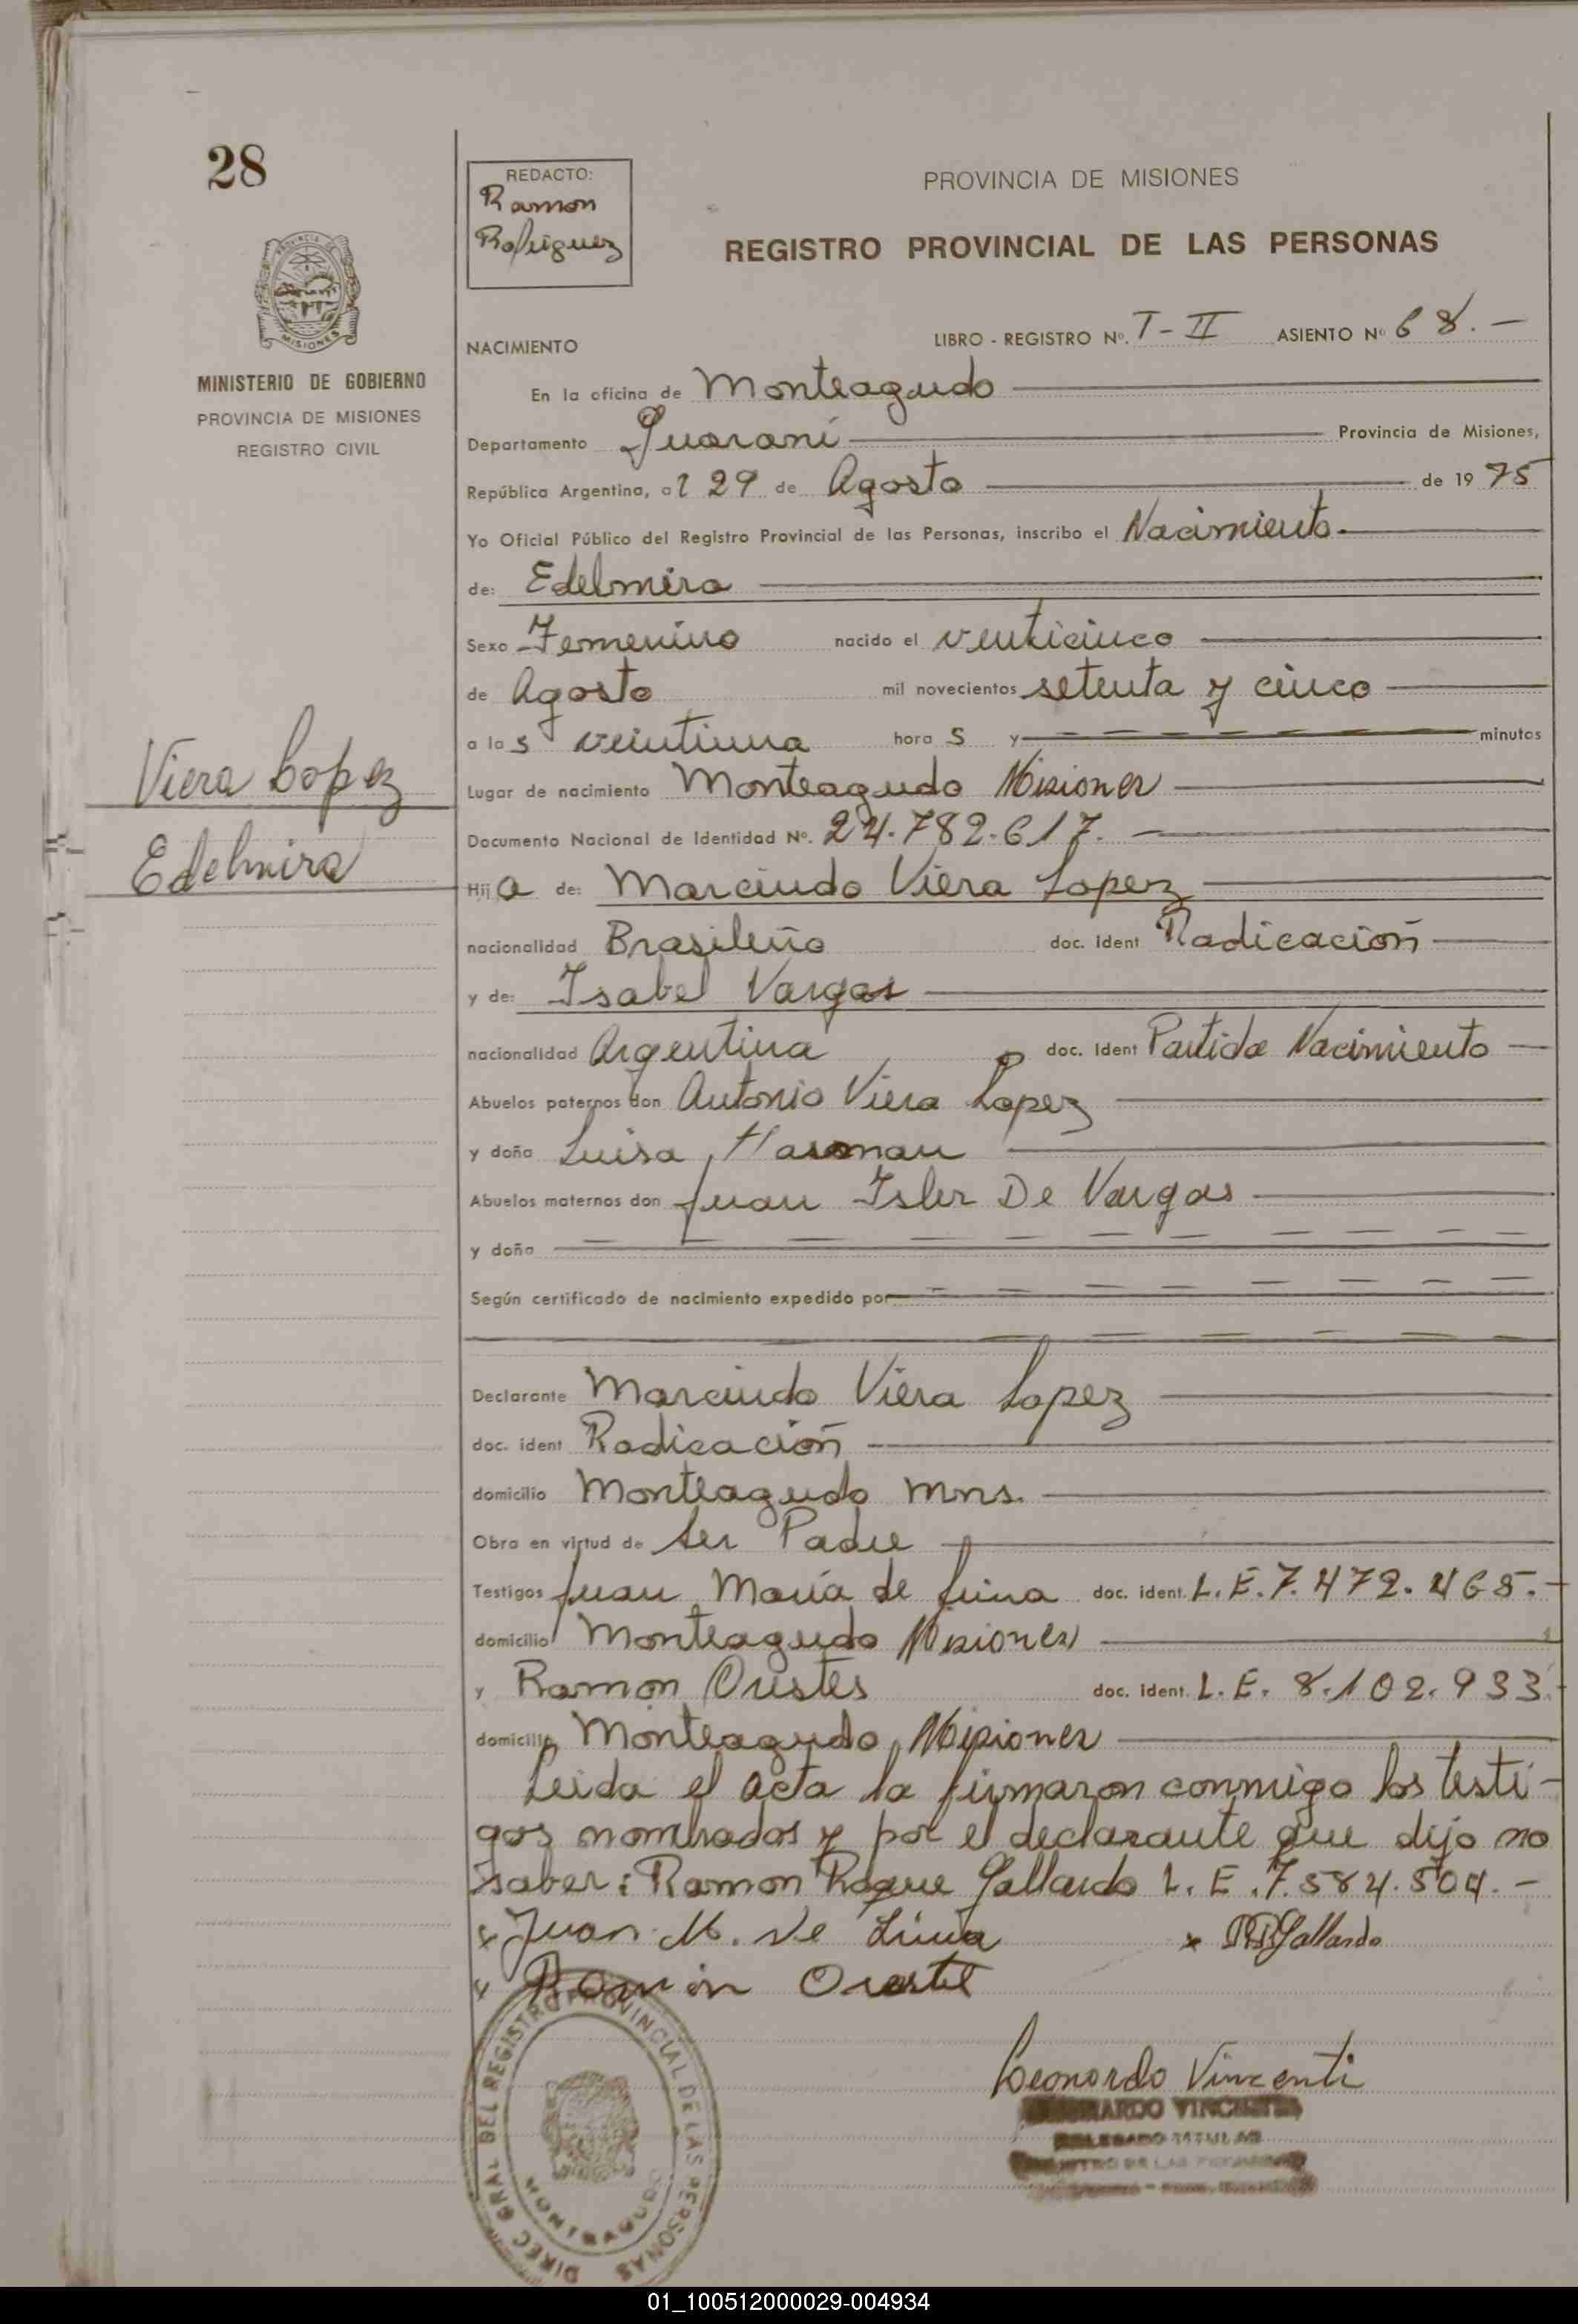 28
REDACTO:
Ramon
Rodriguez
PROVINCIA DE MISIONES
REGISTRO PROVINCIAL DE LAS PERSONAS
PROVINCIA DE
MISIONES
MINISTERIO DE GOBIERNO
PROVINCIA DE MISIONES
REGISTRO CIVIL
NACIMIENTO
LIBRO - REGISTRO Nº. T - II ASIENTO Nº 68. -
En la oficina de Monteagudo
Departamento Guarani Provincia de Misiones,
República Argentina, al 29 de Agosto de 1975
Yo Oficial Público del Registro Provincial de las Personas, inscribo el Nacimiento.
de: Edelmira
Sexo Femenino nacido el venticinco
de Agosto mil novecientos setenta y cinco
a las veintiuna horas y minutos
Viera Lopez
Edelmira
Lugar de nacimiento Monteagudo Misiones
Documento Nacional de Identidad Nº. 24.782.617. -
Hija de: Marcindo Viera Lopez
nacionalidad Brasileña doc. Ident Radicación
y de: Isabel Vargas
nacionalidad Argentina doc. Ident Partida Nacimiento
Abuelos paternos don Antonio Viera Lopez
y doña Luisa
Abuelos maternos don Juan Isler De Vargas
y doña
Según certificado de nacimiento expedido por
Declarante Marcindo Viera Lopez
doc. ident Radicación
domicilio Monteagudo Mns.
Obra en virtud de ser Padre
Testigos Juan María de Lima doc. ident. L.E. 7.472.465. -
domicilio Monteagudo Misiones
y Ramon Orestes doc. ident. L.E. 8.102.933.
domicilio Monteagudo, Misiones
Leida el acta la firmaron conmigo los testi-
gos nombrados y por el declarante que dijo no
saber: Ramon Roque Gallardo L.E. 7.584.504. -
x Juan M. de Lima x RRGallardo
x Ramón Orestes
DIREC. GRAL. DEL REGISTRO PROVINCIAL DE LAS PERSONAS
MONTEAGUDO
Leonardo Vincenti
LEONARDO VINCENTI
DELEGADO TITULAR
01_100512000029-004934